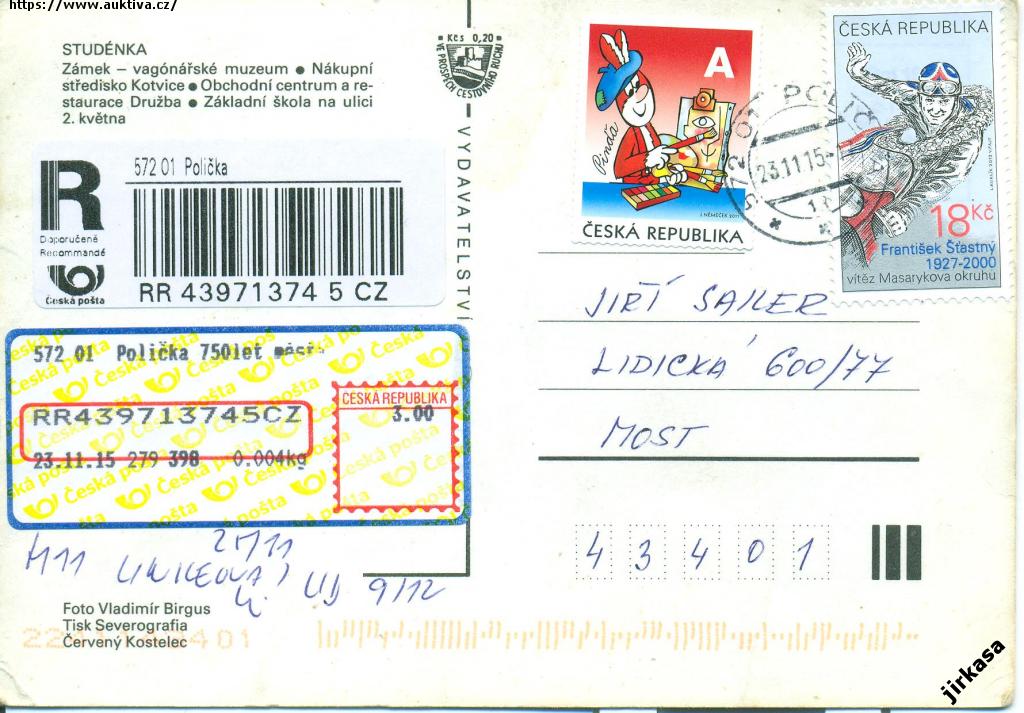 https://www.auktiva.cz/
STUDÉNKA
Zámek – vagónářské muzeum ● Nákupní
středisko Kotvice ● Obchodní centrum a re-
staurace Družba ● Základní škola na ulici
2. května
Kčs 0,20
VE PROSPĚCH CESTOVNÍHO RUCHU
VYDAVATELSTVÍ
R
Doporučeně
Recommandé
Česká pošta
572 01 Polička
RR 43971374 5 CZ
572 01 Polička 750let
RR439713745CZ
23.11.15 279 398 0.004kg
ČESKÁ REPUBLIKA
3.00
A
Pinďa
J. NĚMEČEK 2011
ČESKÁ REPUBLIKA
572 01 POLIČ
23.11.15
ČESKÁ REPUBLIKA
18 Kč
František Šťastný
1927-2000
vítěz Masarykova okruhu
JIŘÍ SAILER
LIDICKÁ 600/77
MOST
4 3 4 0 1
M11
2M11
9/12
Foto Vladimír Birgus
Tisk Severografia
Červený Kostelec
jirkasa